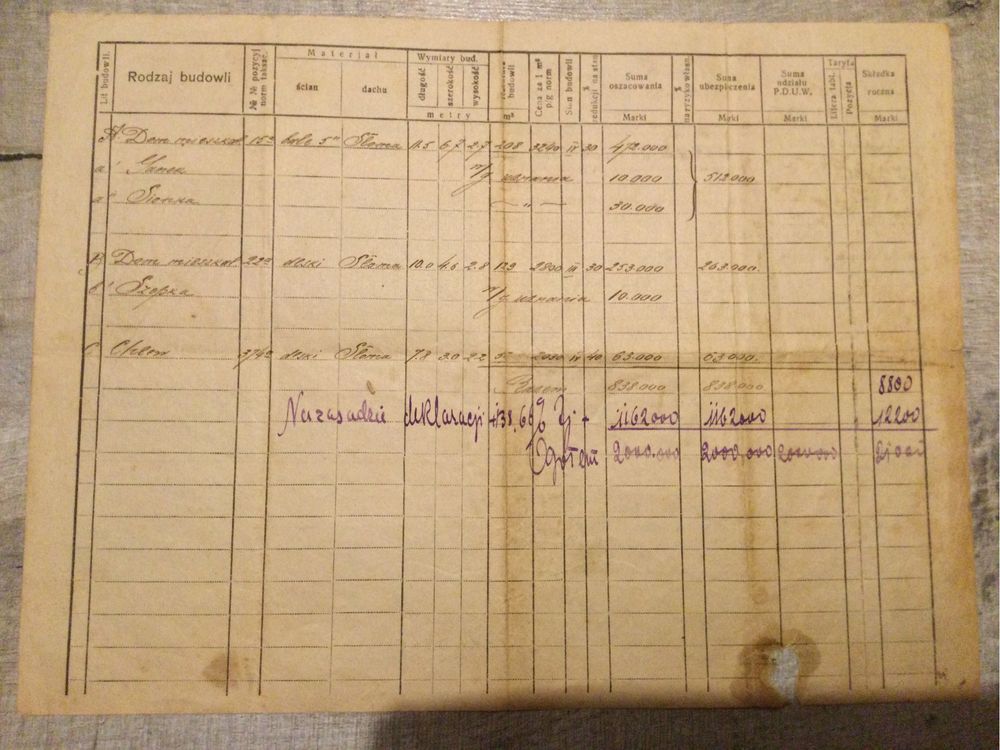 Lit budowli. Rodzaj budowli №№ pozycyj norm taksac. Materjał ścian dachu Wymiary bud. długość szerokość wysokość metry budowli m² Cena za 1 m² p/g norm Stan budowli % redukcji na stan Suma oszacowania Marki % na ryzyko własn. Suma ubezpieczenia Marki Suma udziału P.D.U.W. Marki Taryfa Litera tabl. Pozycja Składka roczna Marki
A Dom mieszkal 15a bale 5" Słoma 11.5 6.7 2.7 208 3240 III 30 472.000
a' p/g uznania 10.000 512.000
a" Sionka — " — 30.000
B Dom mieszkal 22a deski Słoma 10.0 4.6 2.8 129 2800 III 30 253.000 263.000
b' Szopka p/g uznania 10.000
C Chlew 374a deski Słoma 7.8 3.0 2.2 IV 40 63.000 63.000
Razem 838.000 838.000 8800
Na zasadzie deklaracji +138,66% tj + 1162000 1162000 12200
Ogółem 2000.000 2000,000 2000000 21000